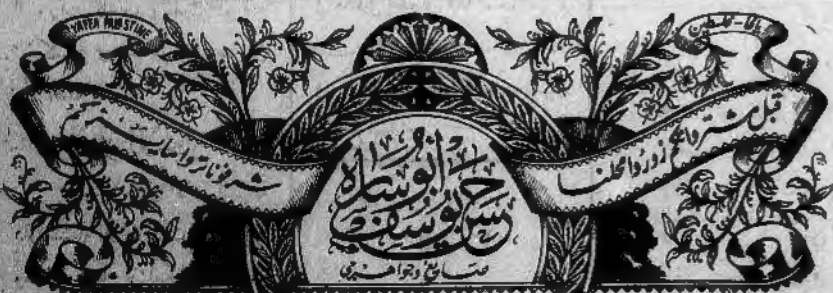 YAFFA PALESTINE
يافا - فلسطين
قبل مشترواتكم زوروا محلنا
شرفونا تروا ما يسركم
حسن يوسف أبو ساره
صايغ وجواهرجي